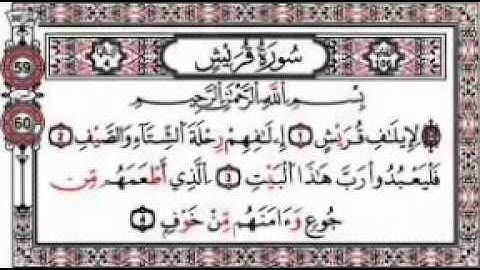 سُورَةُ قُرَيْشٍ
بِسْمِ ٱللَّهِ ٱلرَّحْمَٰنِ ٱلرَّحِيمِ
لِإِيلَافِ قُرَيْشٍ ١ إِۦلَافِهِمْ رِحْلَةَ ٱلشِّتَآءِ وَٱلصَّيْفِ ٢
فَلْيَعْبُدُوا۟ رَبَّ هَٰذَا ٱلْبَيْتِ ٣ ٱلَّذِيٓ أَطْعَمَهُم مِّن
جُوعٍ وَءَامَنَهُم مِّنْ خَوْفٍ ٤
59
60